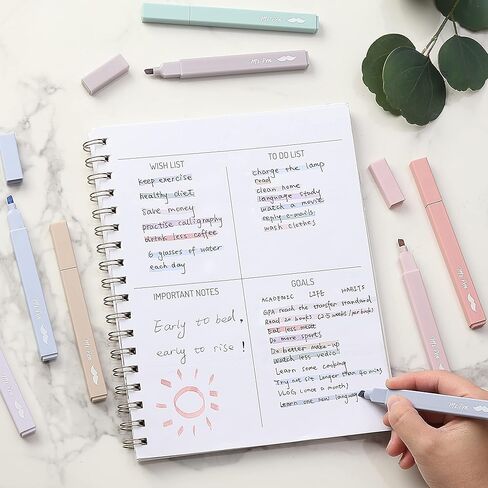 Mr. Pen
Mr. Pen
WISH LIST
keep exercise
healthy diet
save money
practise calligraphy
drink less coffee
6 glasses of water
each day
TO DO LIST
change the lamp
read
clean home
language study
watch a movie
reply e-mails
wash clothes
IMPORTANT NOTES
Early to bed,
early to rise!
GOALS
ACADEMIC LIFE HABITS
GPA reach the transfer standard
Read 20 books (2.5 weeks / per book)
Eat less meat
Do more sports
Do better make-up
Watch less vedio
Learn some cooking
Try out sit longer than 40 mins
VLOG (once a month)
Learn one new language
Mr. Pen
Mr. Pen
Mr. Pen
Mr. Pen
Mr. Pen
Mr. Pen